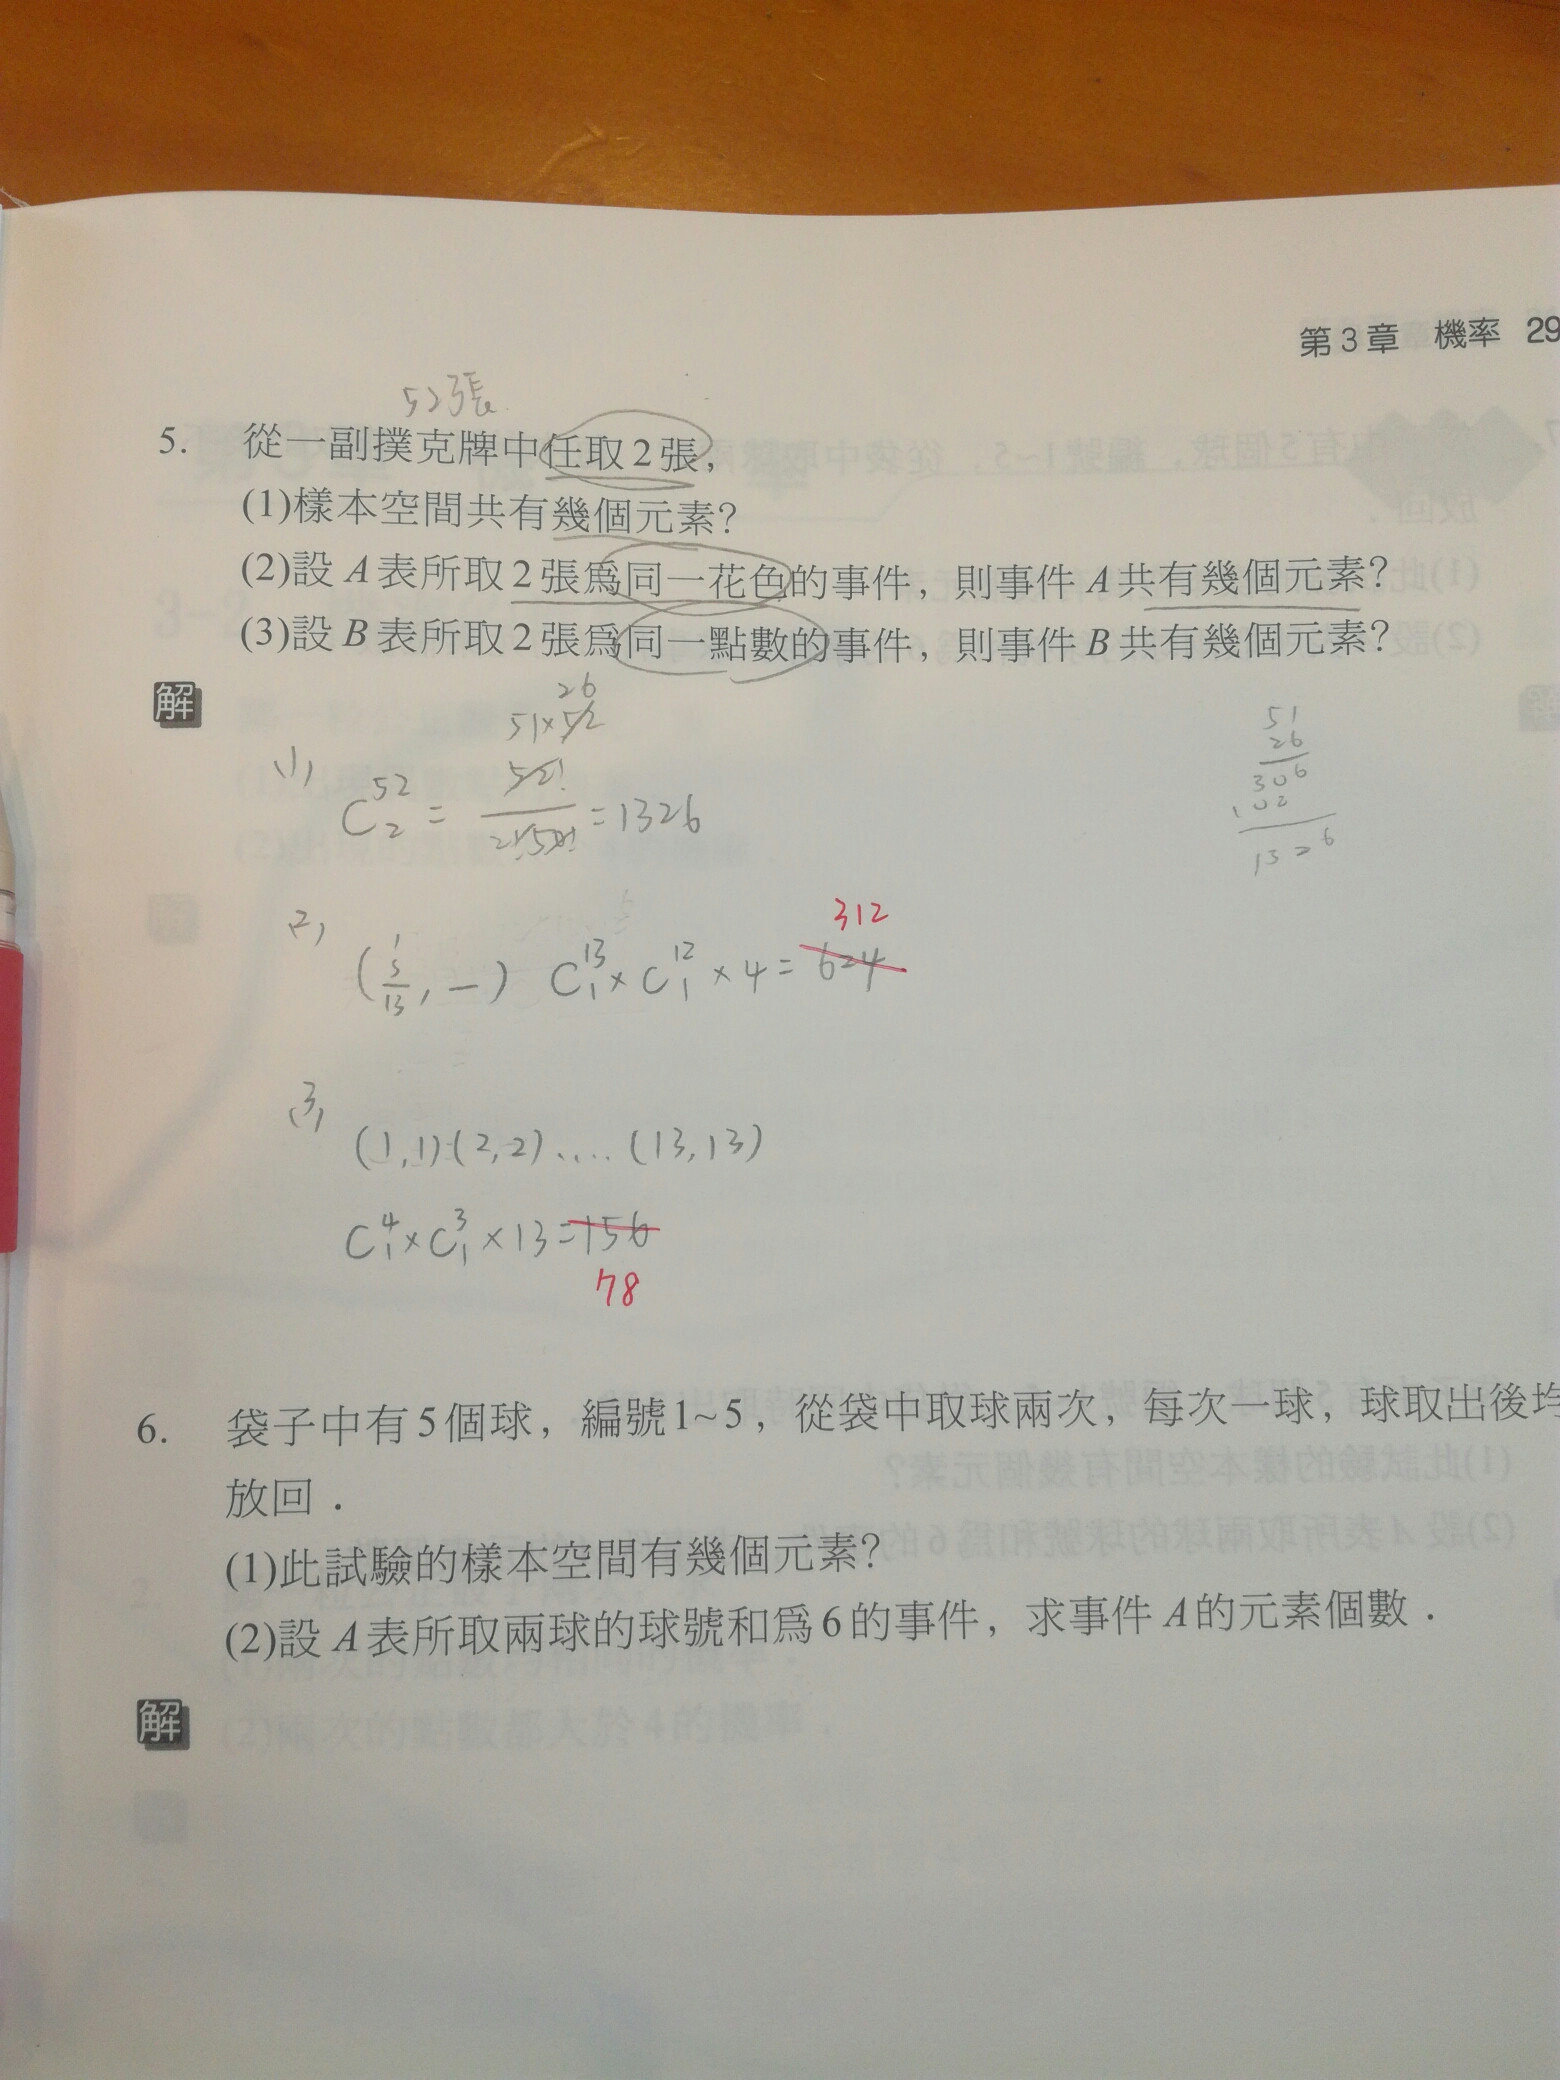 第3章 機率 29
52張
5. 從一副撲克牌中任取2張，
(1)樣本空間共有幾個元素？
(2)設A表所取2張為同一花色的事件，則事件A共有幾個元素？
(3)設B表所取2張為同一點數的事件，則事件B共有幾個元素？
解
26
51×52
(1) C⁵²₂ = 52!/2!50! = 1326
51
26
306
102
1326
312
(2) ( , —) C¹³₁×C¹²₁×4=624
(3)
(1,1)(2,2)....(13,13)
C⁴₁×C³₁×13=156
78
6. 袋子中有5個球，編號1~5，從袋中取球兩次，每次一球，球取出後均
放回．
(1)此試驗的樣本空間有幾個元素？
(2)設A表所取兩球的球號和為6的事件，求事件A的元素個數．
解